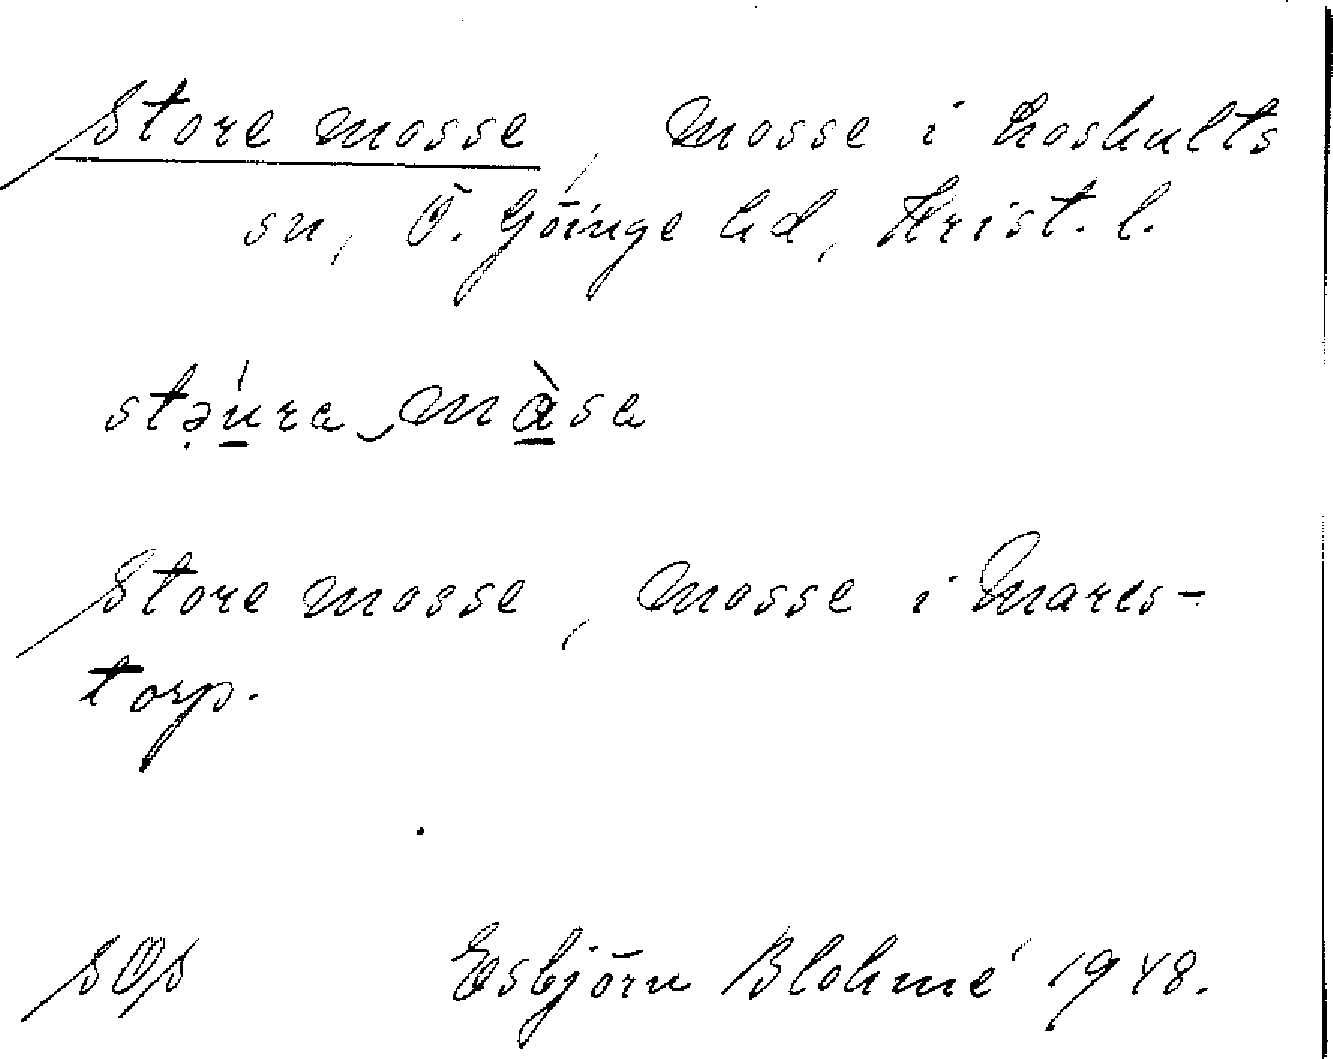 Store mosse, Mosse i Loshults
sn, Ö. Göinge hd, Krist. l.
stə̣́u̲ra‿mà̲sa
Store mosse, Mosse i Mares-
torp.
SOS Esbjörn Blohmé 1948.